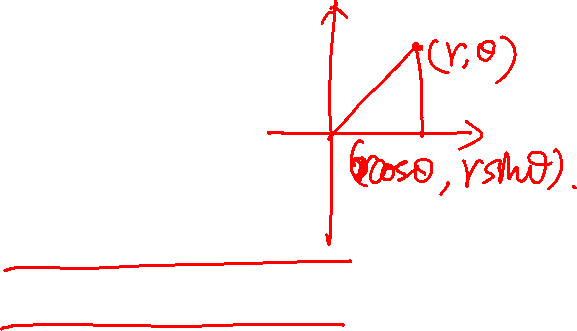 (r, θ)
(rcosθ, rsinθ).